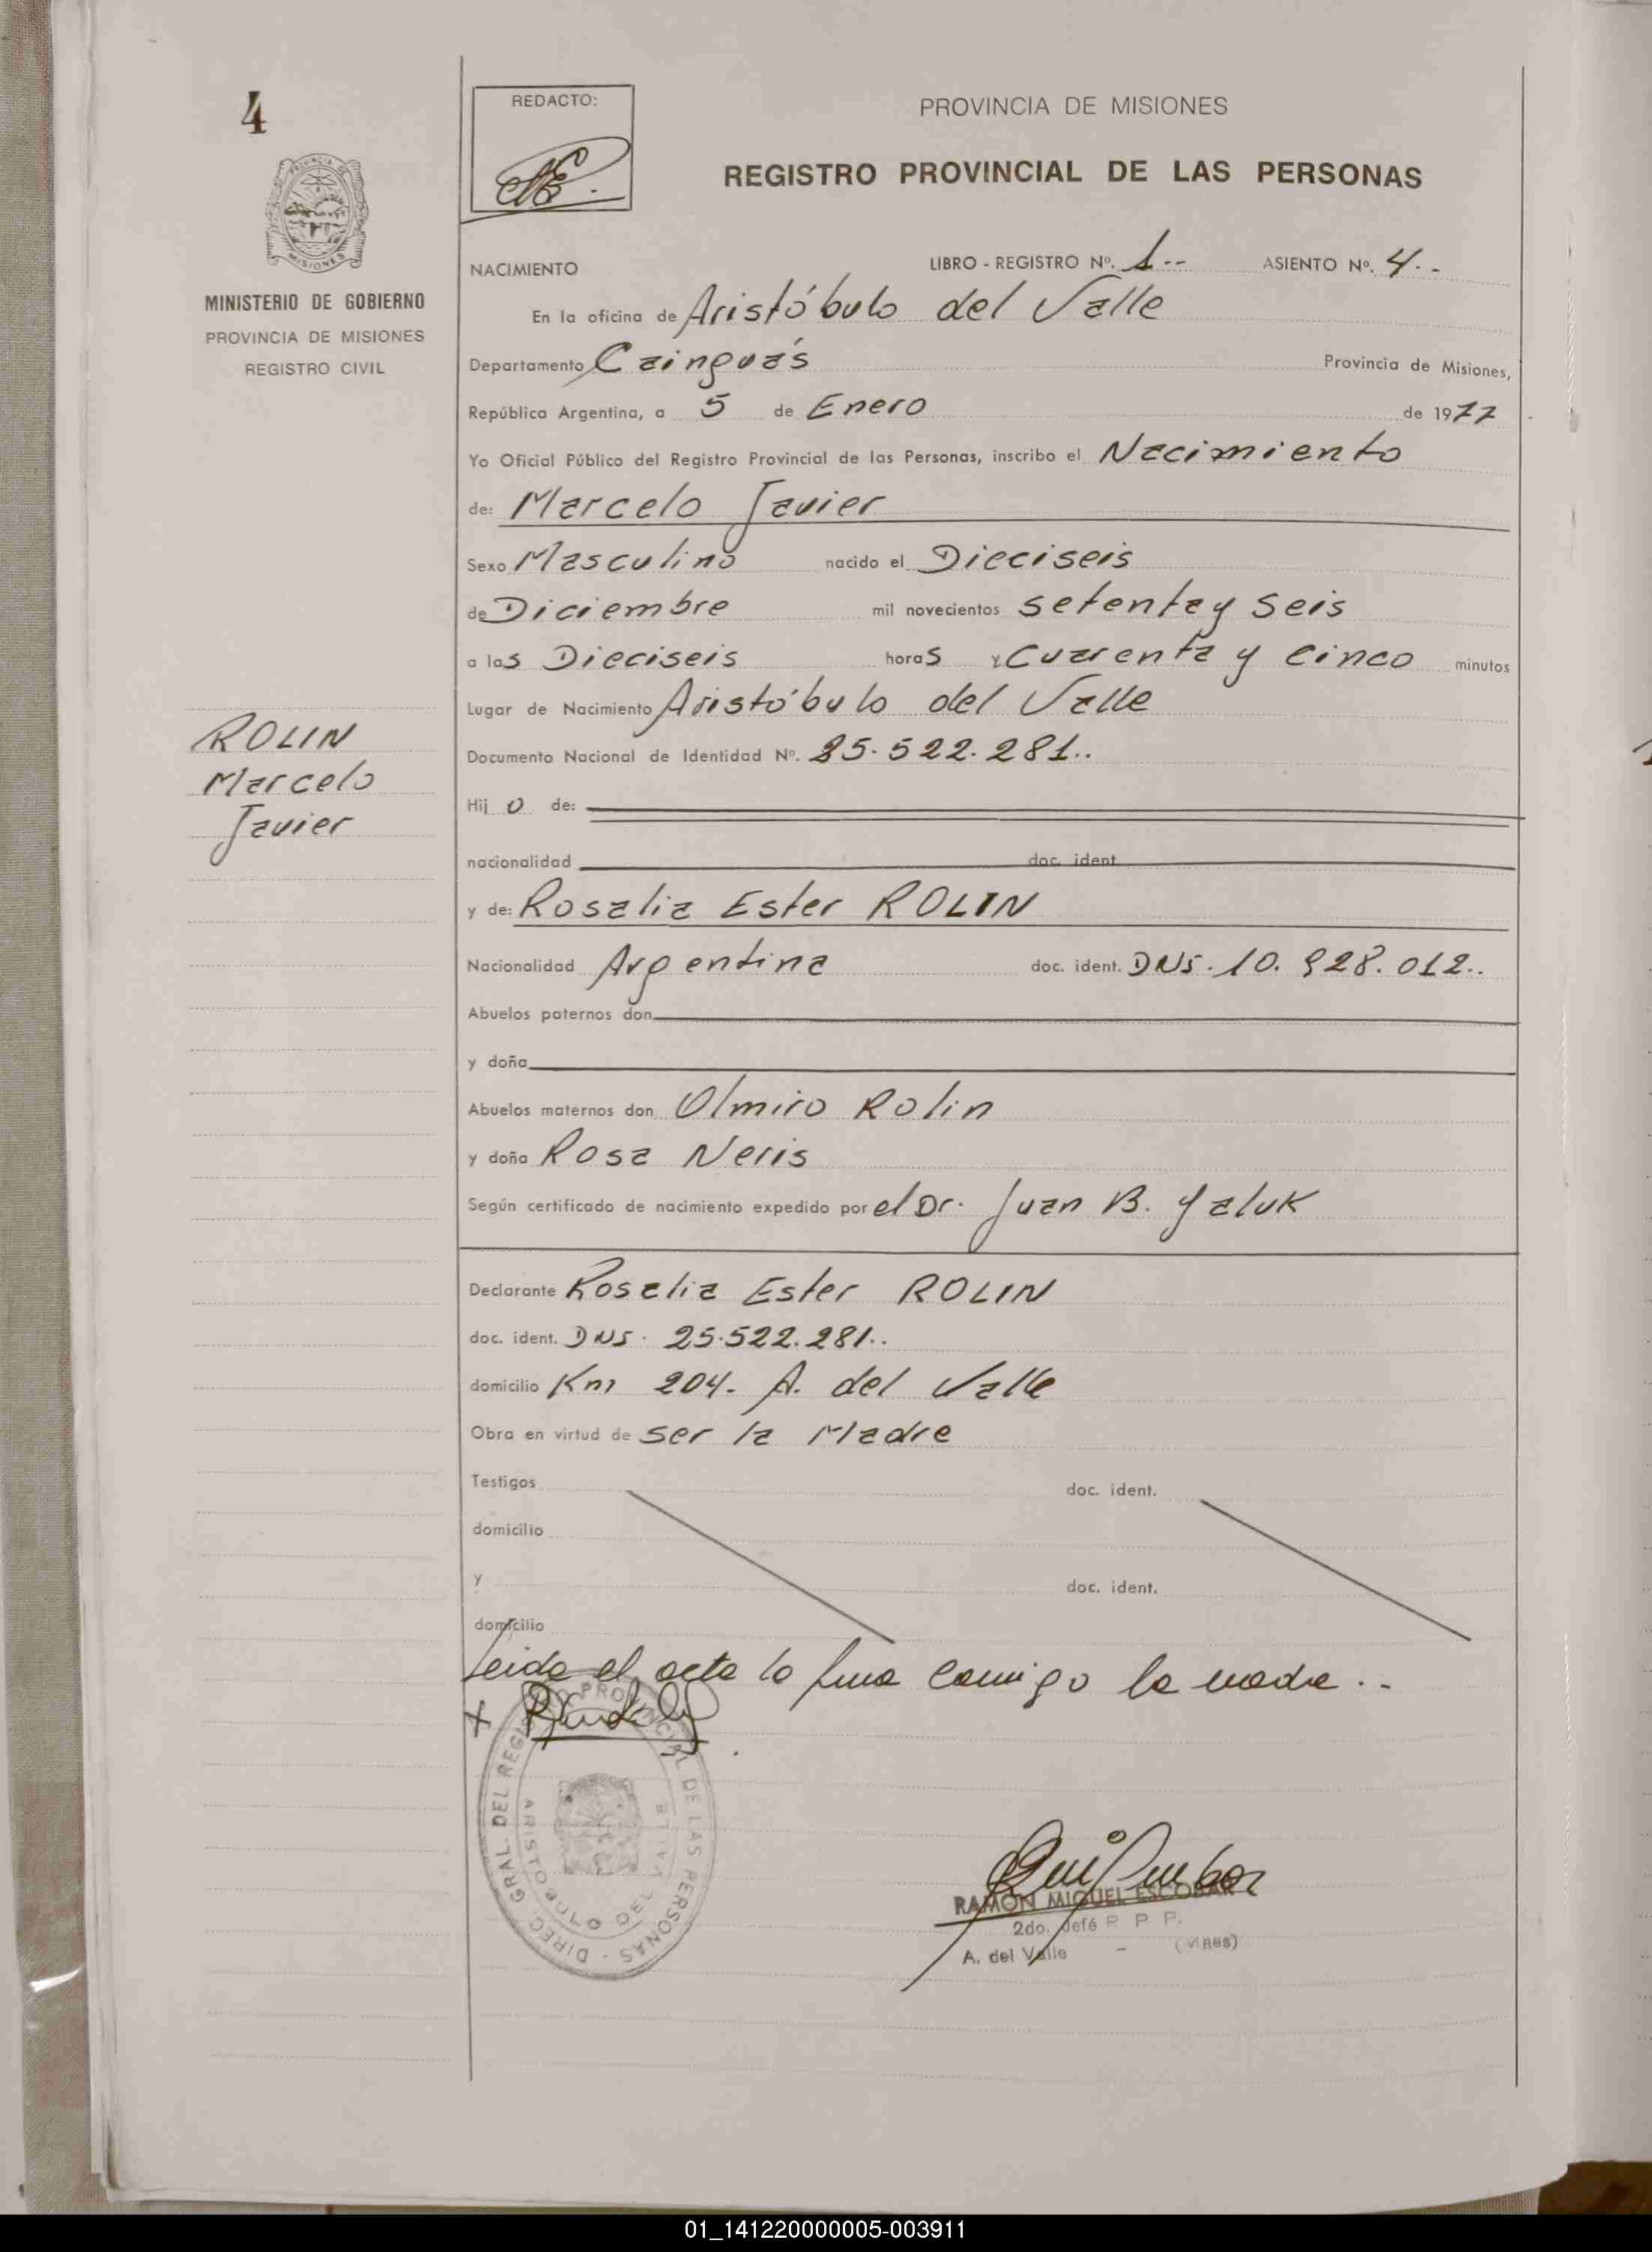 4
REDACTO:
PROVINCIA DE MISIONES
REGISTRO PROVINCIAL DE LAS PERSONAS
PROVINCIA DE
MISIONES
MINISTERIO DE GOBIERNO
PROVINCIA DE MISIONES
REGISTRO CIVIL
NACIMIENTO LIBRO - REGISTRO Nº. 1-- ASIENTO Nº. 4.-
En la oficina de Aristóbulo del Valle
Departamento Cainguás Provincia de Misiones,
República Argentina, a 5 de Enero de 1977
Yo Oficial Público del Registro Provincial de las Personas, inscribo el Nacimiento
de: Marcelo Javier
Sexo Masculino nacido el Dieciseis
de Diciembre mil novecientos setenta y seis
a las Dieciseis horas y Cuarenta y cinco minutos
Lugar de Nacimiento Aristóbulo del Valle
ROLIN
Marcelo
Javier
Documento Nacional de Identidad Nº. 25.522.281..
Hijo de:
nacionalidad doc. ident.
y de: Rosalia Ester ROLIN
Nacionalidad Argentina doc. ident. DNI. 10.928.012..
Abuelos paternos don
y doña
Abuelos maternos don Olmiro Rolin
y doña Rosa Neris
Según certificado de nacimiento expedido por el Dr. Juan B. Yaluk
Declarante Rosalia Ester ROLIN
doc. ident. DNI. 25.522.281..
domicilio Km 204. A. del Valle
Obra en virtud de ser la Madre
Testigos doc. ident.
domicilio
y doc. ident.
domicilio
Leida el acta la firma conmigo la madre..
DIREC. GRAL. DEL REGISTRO PROVINCIAL DE LAS PERSONAS -
ARISTOBULO DEL VALLE
RAMON MIGUEL ESCOBAR
2do. Jefe R P P.
A. del Valle - (Mnes)
01_141220000005-003911